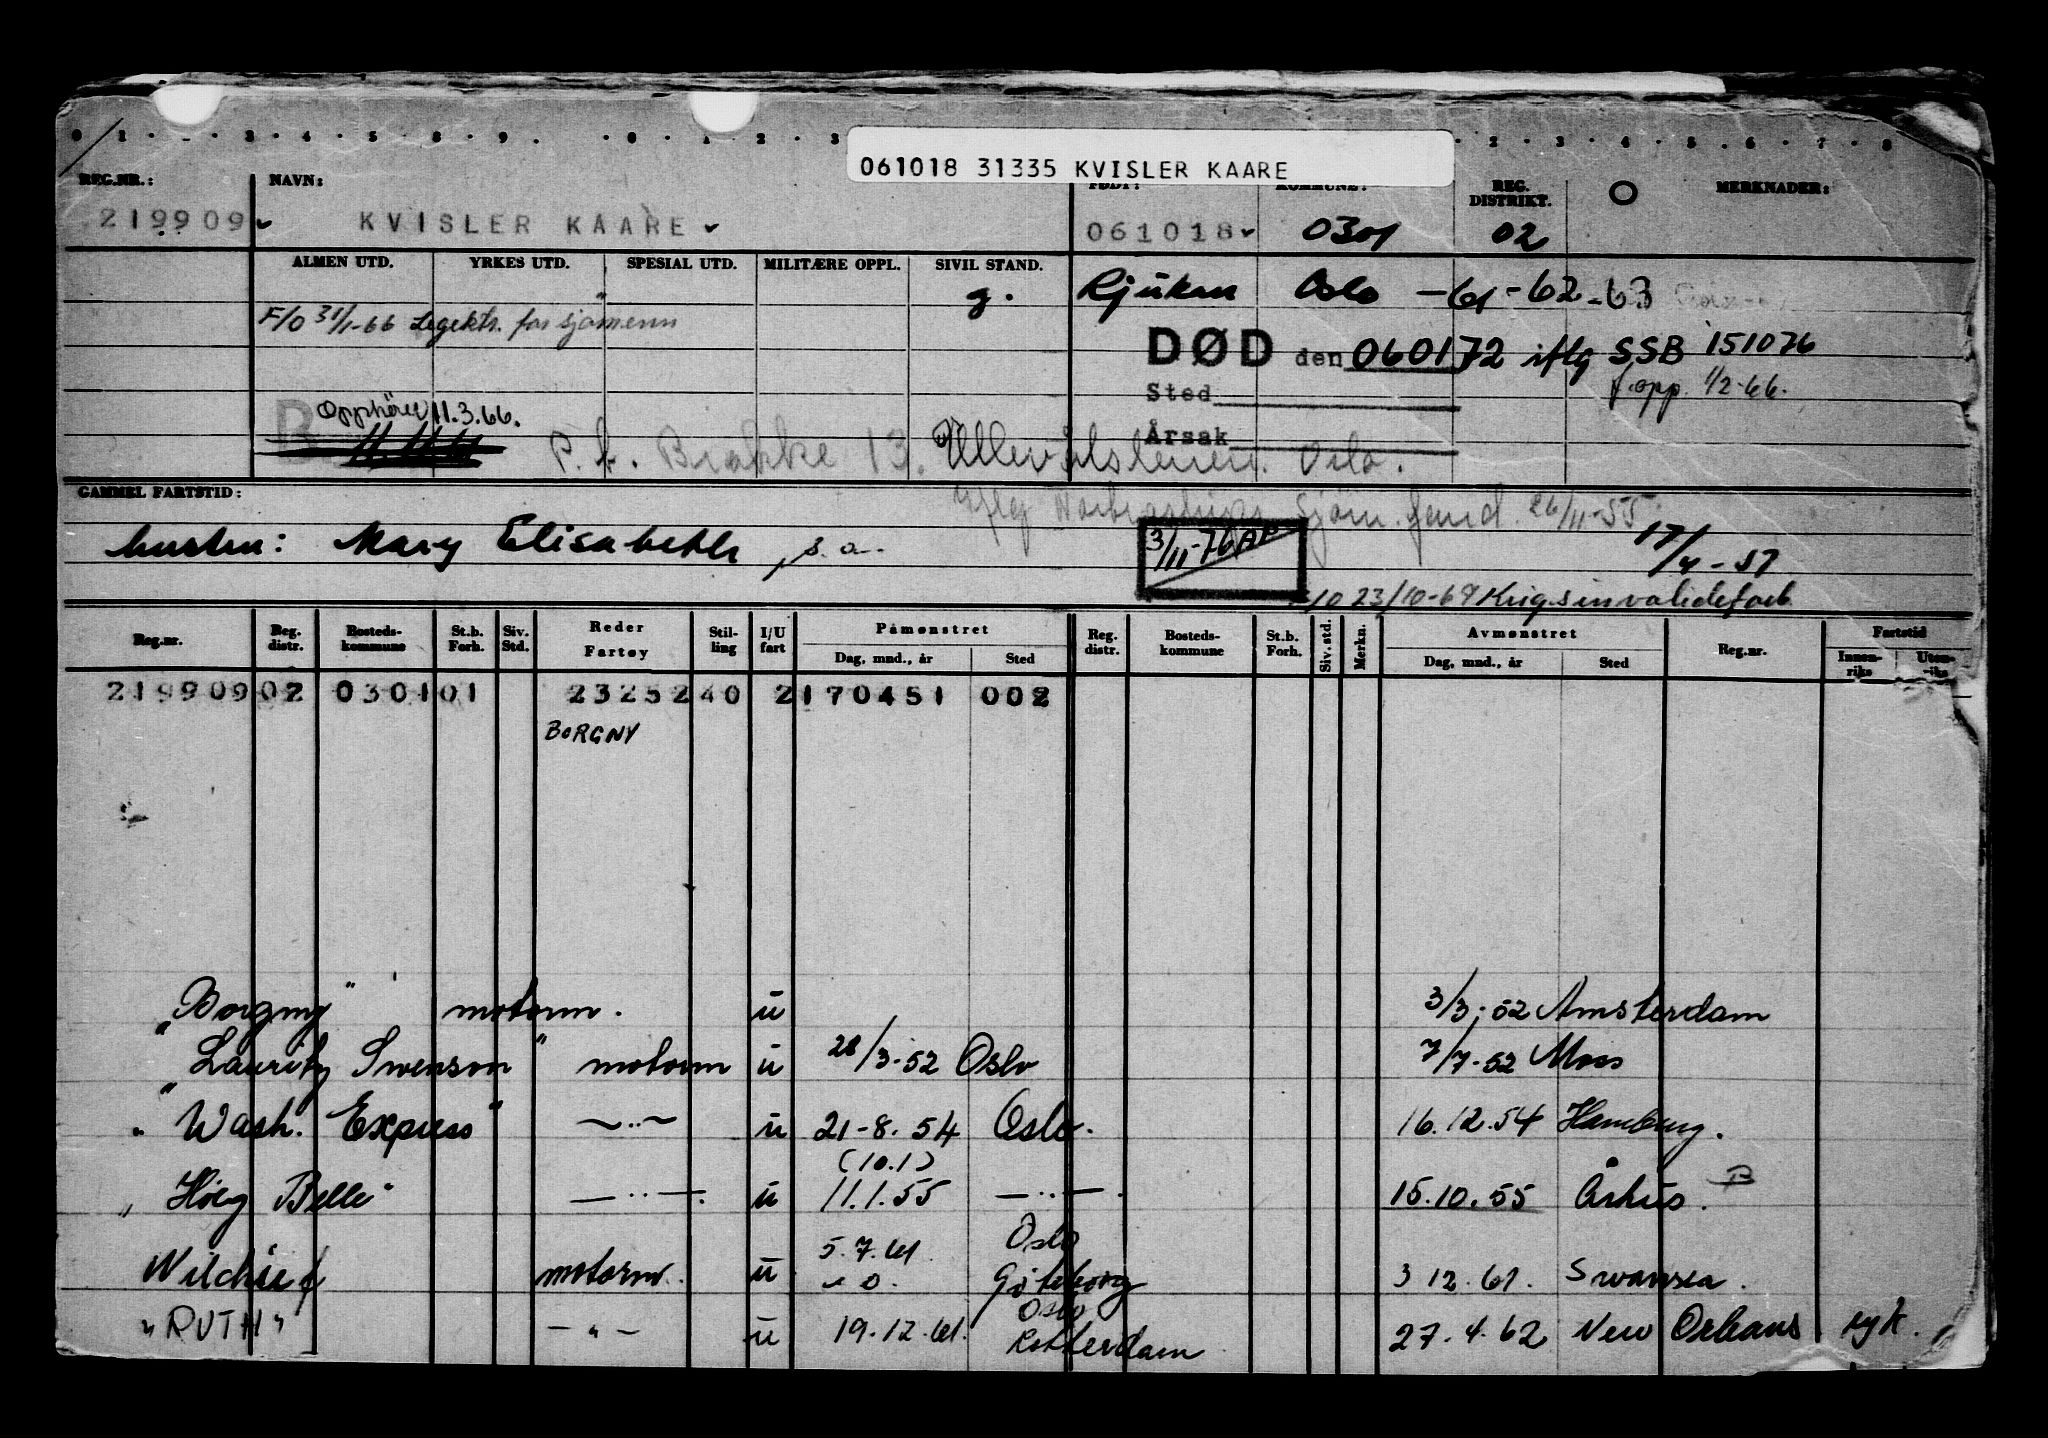 061018 31335 KVISLER KAARE
REG.NR.: NAVN: FØDT: KOMMUNE: REG. DISTRIKT. O MERKNADER:
219909 KVISLER KAARE 061018 0301 02
ALMEN UTD. YRKES UTD. SPESIAL UTD. MILITÆRE OPPL. SIVIL STAND.
g. Rjukan Oslo -61-62-63
F/O 31/1-66 Legektr. for sjømenn
DØD den 060172 iflg SSB 151076
Sted f.opp. 1/2-66.
Opphører 11.3.66.
Årsak
P.t. Brakke 13. Ullevålsveien. Oslo.
GAMMEL FARTSTID:
Iflg Sjøm. 26/11-55
hustru: Mary Elisabeth, s.a. 3/11-76 17/4-57
F/O 23/10-69 Krigsinvalideforb.
Reg.nr. Reg. distr. Bosteds-kommune St.b. Forh. Siv. Std. Reder Fartøy Stil-ling I/U fart Påmønstret Dag, mnd., år Sted Reg. distr. Bosteds-kommune St.b. Forh. Siv. std. Merkn. Avmønstret Dag, mnd., år Sted Reg.nr. Fartstid Innen-riks Uten-riks
219909 02 0301 01 2325240 2 170451 002
BORGNY
"Borgny" motorm. u 3/3-52 Amsterdam
"Lauritz Swenson" motorm u 28/3-52 Oslo 7/7-52 Moss
"Wash. Express" —··— u 21-8.54 Oslo. 16.12.54 Hamburg.
(10.1)
"Höeg Belle" —··— u 11.1.55 —··—. 15.10.55 Århus. B
5.7.61 Oslo
Wilchief motorm. u - o. Göteborg 3 12.61. Swansea.
Oslo
"RUTH" — " — u 19.12.61. Rotterdam 27.4.62 New Orleans syk.